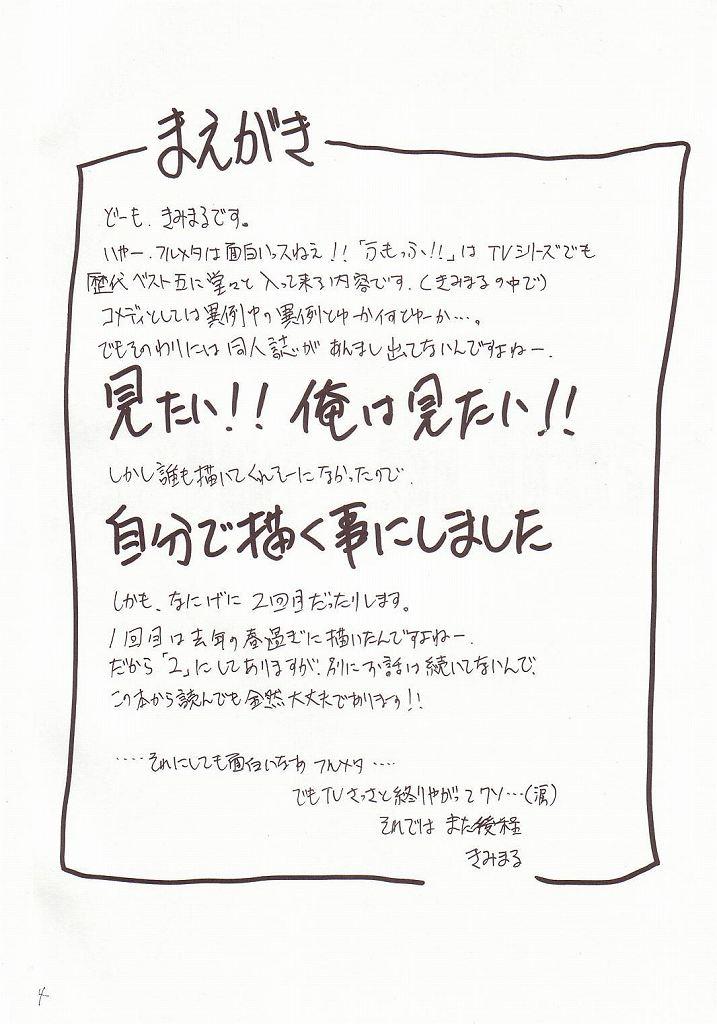 まえがき
どーも、きみまるです。
いやー、フルメタは面白いっスねえ!!「ふもっふ!!」は TVシリーズでも
歴代ベスト五に堂々と入って来る内容です.(きみまるの中で)
コメディとしては異例中の異例とゆーか
でもそのわりには同人誌があんまし出てないんですよねー.
見たい!! 俺は見たい!!
しかし誰も描いてくれそーになかったので.
自分で描く事にしました
しかも、なにげに2回目だったりします。
1回目は去年の春過ぎに描いたんですよねー.
だから「2」にしてありますが、別にお話は続いてないんで、
この本から読んでも全然大丈夫であります!!
‥‥それにしても面白いなあ フルメタ‥‥
でもTVさっさと終りやがってクソ…(涙)
それでは また後程
きみまる
4